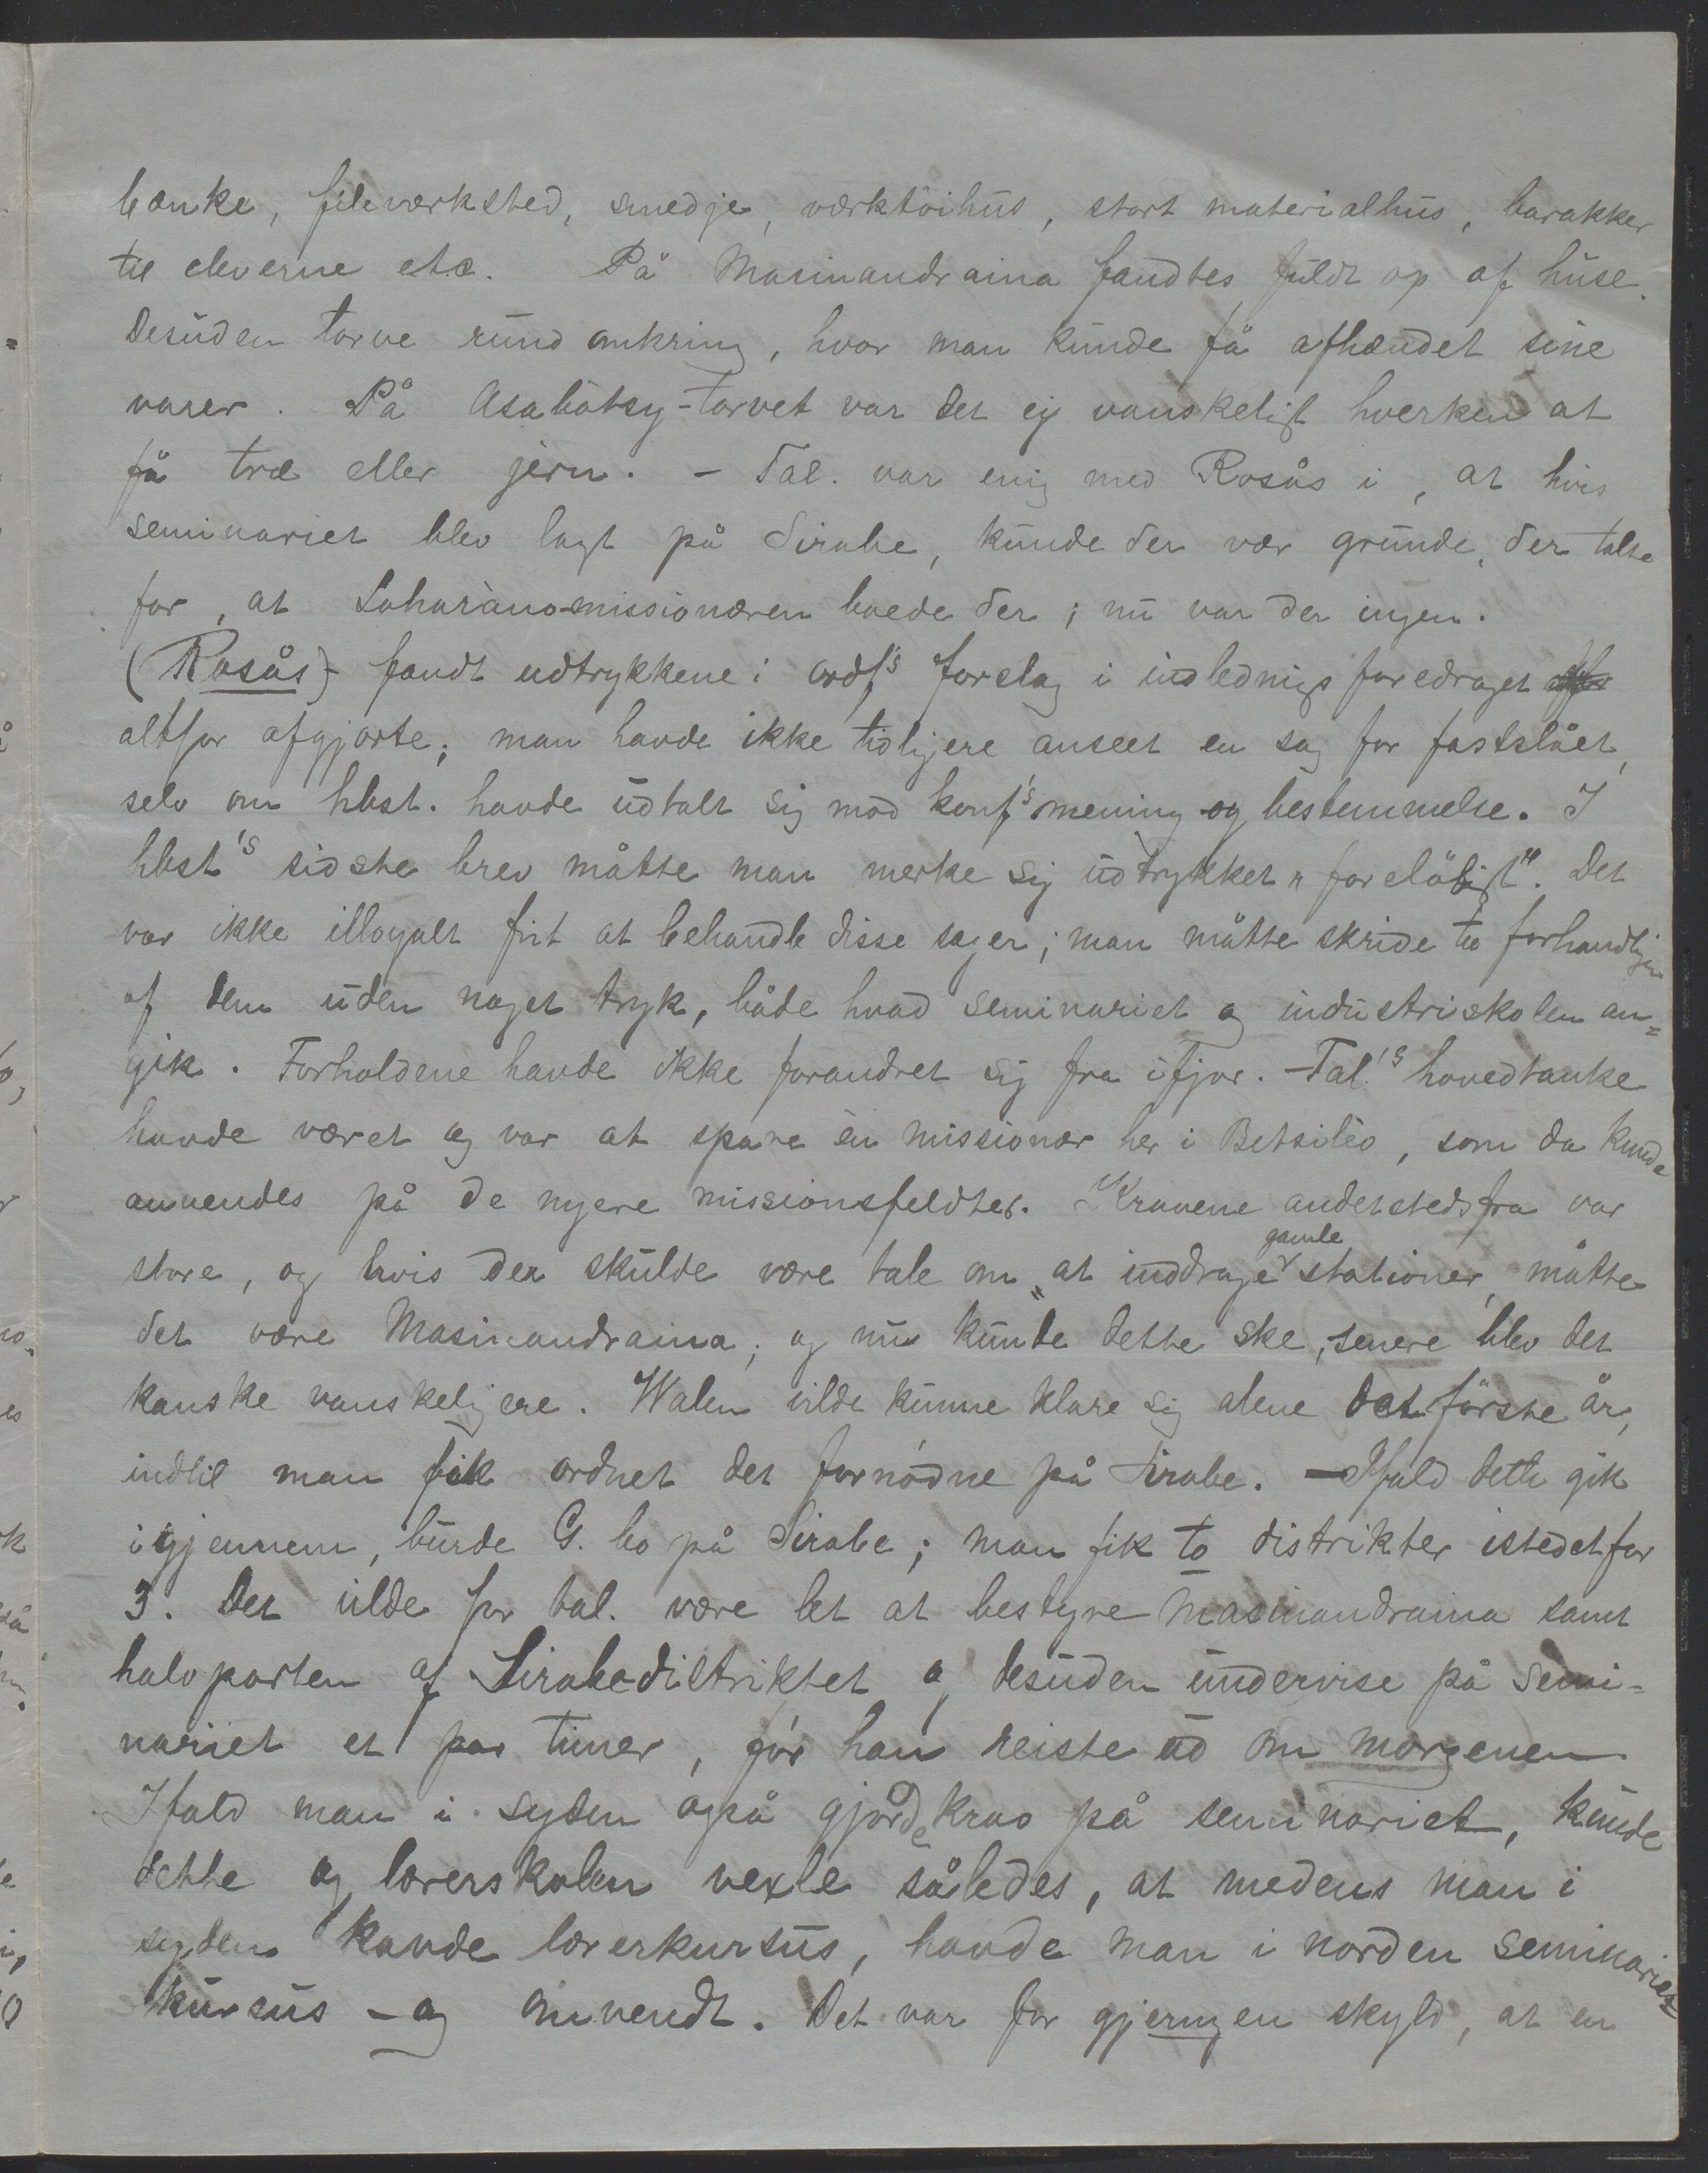 bænke, fileværksted, smedje, værktöihus, stort materialhus, barakker
til eleverne etc. På Masinandraina fandtes fuldt op af huse.
Desuden torve rund omkring, hvor man kunde få afhændet sine
varer. På Asabotsy-torvet var det ej vanskeligt hverken at
få træ eller jern. - Tal. var enig med Rosås i, at hvis
seminariet blev lagt på Sirabe, kunde der vær grunde, der talte
for, at Loharano-missionæren boede der; nu var der ingen.
(Rosås) fandt udtrykkene i ordf's forslag i indlednigs foredraget
altfor afgjorte; man havde ikke tidligere anseet en sag for fastslået,
selv om hbst. havde udtalt sig mod konf's mening og bestemmelse. I
hbst's sidste brev måtte man merke sig udtrykket "foreløbigt". Det
var ikke illoyalt frit at behandle disse sager; man måtte skride til forhandligen
af dem uden noget tryk, både hvad seminariet og industriskolen an=
gik. Forholdene havde ikke forandret sig fra ifjor. - Tal.'s hovedtanke
havde været og var at spare èn missionær her i Betsiléo, som da kunde
anvendes på de nyere missionsfeldter. Kravene andetstedsfra var
store, og hvis der skulde være tale om at inddrage gamle stationer, måtte
det være Masinandraina; og nu kunde dette ske, senere blev det
kanske vanskeligere. Walen vilde kunne klare sig alene det förste år,
indtil man fik ordnet det fornödne på Sirabe. - Ifald dette gik
igjennem, burde G. bo på Sirabe; man fik to distrikter istedetfor
3. Det vilde for tal. være let at bestyre Masinandraina samt
halvparten af Sirabedistriktet og desuden undervise på semi=
nariet et par timer, för han reiste ud om morgenen
Ifald man i syden også gjorde krav på seminariet, kunde
dette og lærerskolen vexle således, at medens man i
syden havde lærerkursus, havde man i norden seminariet
kursus - og omvendt. Det var for gjerningen skyld, at en